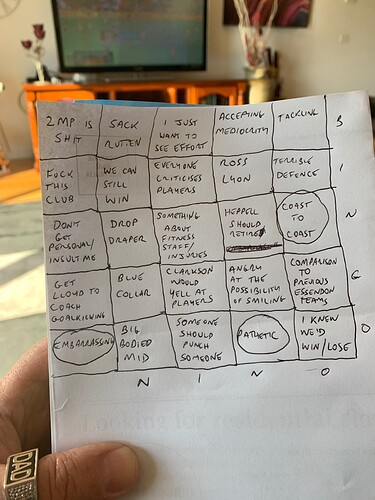 2MP IS
SHIT
SACK
RUTTEN
I JUST
WANT TO
SEE EFFORT
ACCEPTING
MEDIOCRITY
TACKLING
B
FUCK
THIS
CLUB
WE CAN
STILL
WIN
EVERYONE
CRITICISES
PLAYERS
ROSS
LYON
TERRIBLE
DEFENCE
I
DON'T
GET
PERSONAL/
INSULT ME
DROP
DRAPER
SOMETHING
ABOUT
FITNESS
STAFF/
INJURIES
HEPPELL
SHOULD
RETIRE
COAST
TO
COAST
N
GET
LLOYD TO
COACH
GOALKICKING
BLUE
COLLAR
CLARKSON
WOULD
YELL AT
PLAYERS
ANGRY
AT THE
POSSIBILITY
OF SMILING
COMPARISON
TO
PREVIOUS
ESSENDON
TEAMS
G
EMBARRASSING
BIG
BODIED
MID
SOMEONE
SHOULD
PUNCH
SOMEONE
PATHETIC
I KNEW
WE'D
WIN/LOSE
O
N I N O
Looking for residential
DAD